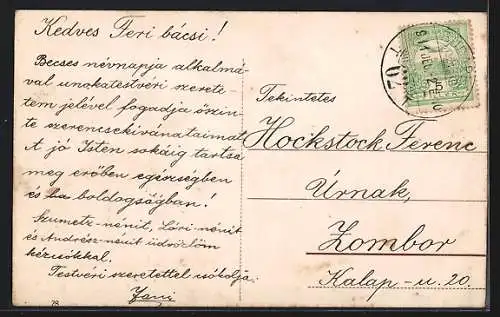 Kedves Feri bácsi!
Becses névnapja alkalmá-
val unokatestvéri szerete-
tem jelével fogadja őszin-
te szerencsekivánataimat
A jó Isten sokáig tartsa
meg erőben egészségben
és boldogságban!
Szumetz-nénit, Lóri-nénit
és Andrész-nénit üdvözlöm
kézcsókkal.
Testvéri szeretettel csókolja:
Jani
Tekintetes
Hockstock Ferenc
Úrnak,
Zombor
Kalap-u. 20.
78